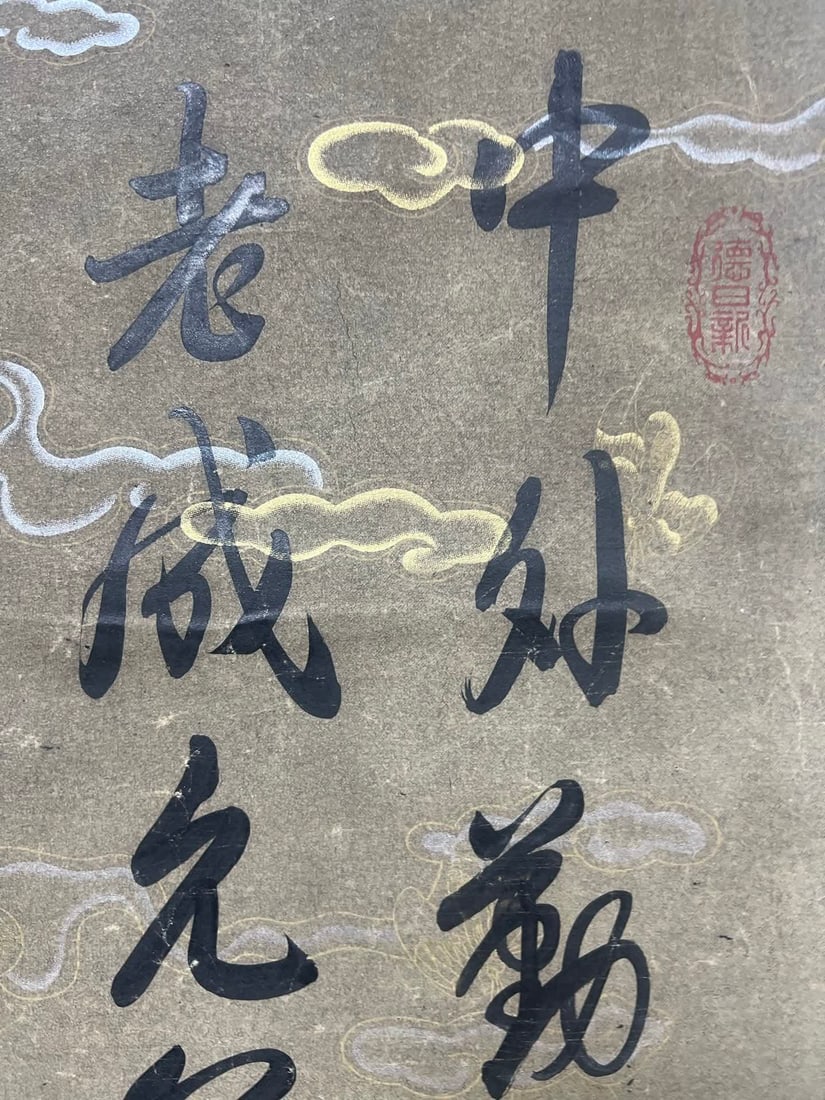 德日新
中外勤
老成允